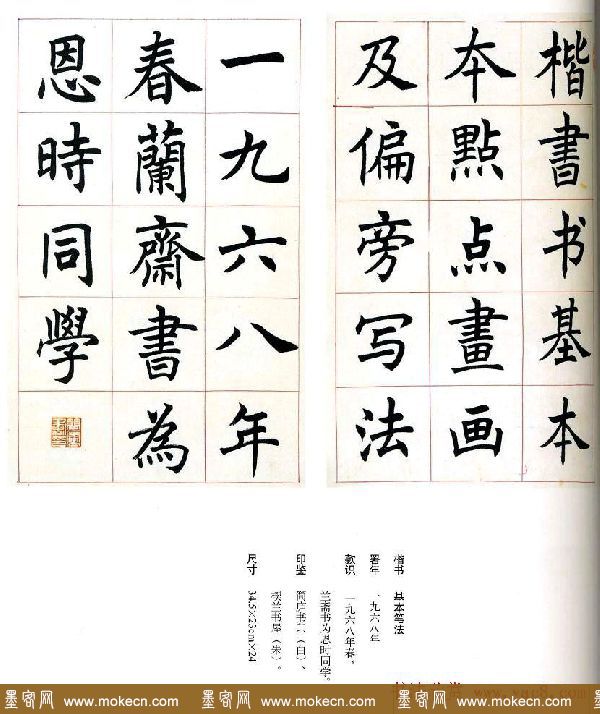 楷書书基本
夲點点畫画
及偏旁写法
一九六八年
春蘭齋書為
恩時同學
楷书 基本笔法
署年 一九六八年
款识 一九六八年春。
兰斋书为恩时同学。
印鉴 (白)、
楼兰书屋(朱)。
尺寸 34.5×25cm×24
www.yac8.com
墨客网 www.mokecn.com 墨客网 www.mokecn.com 墨客网 www.mokecn.com